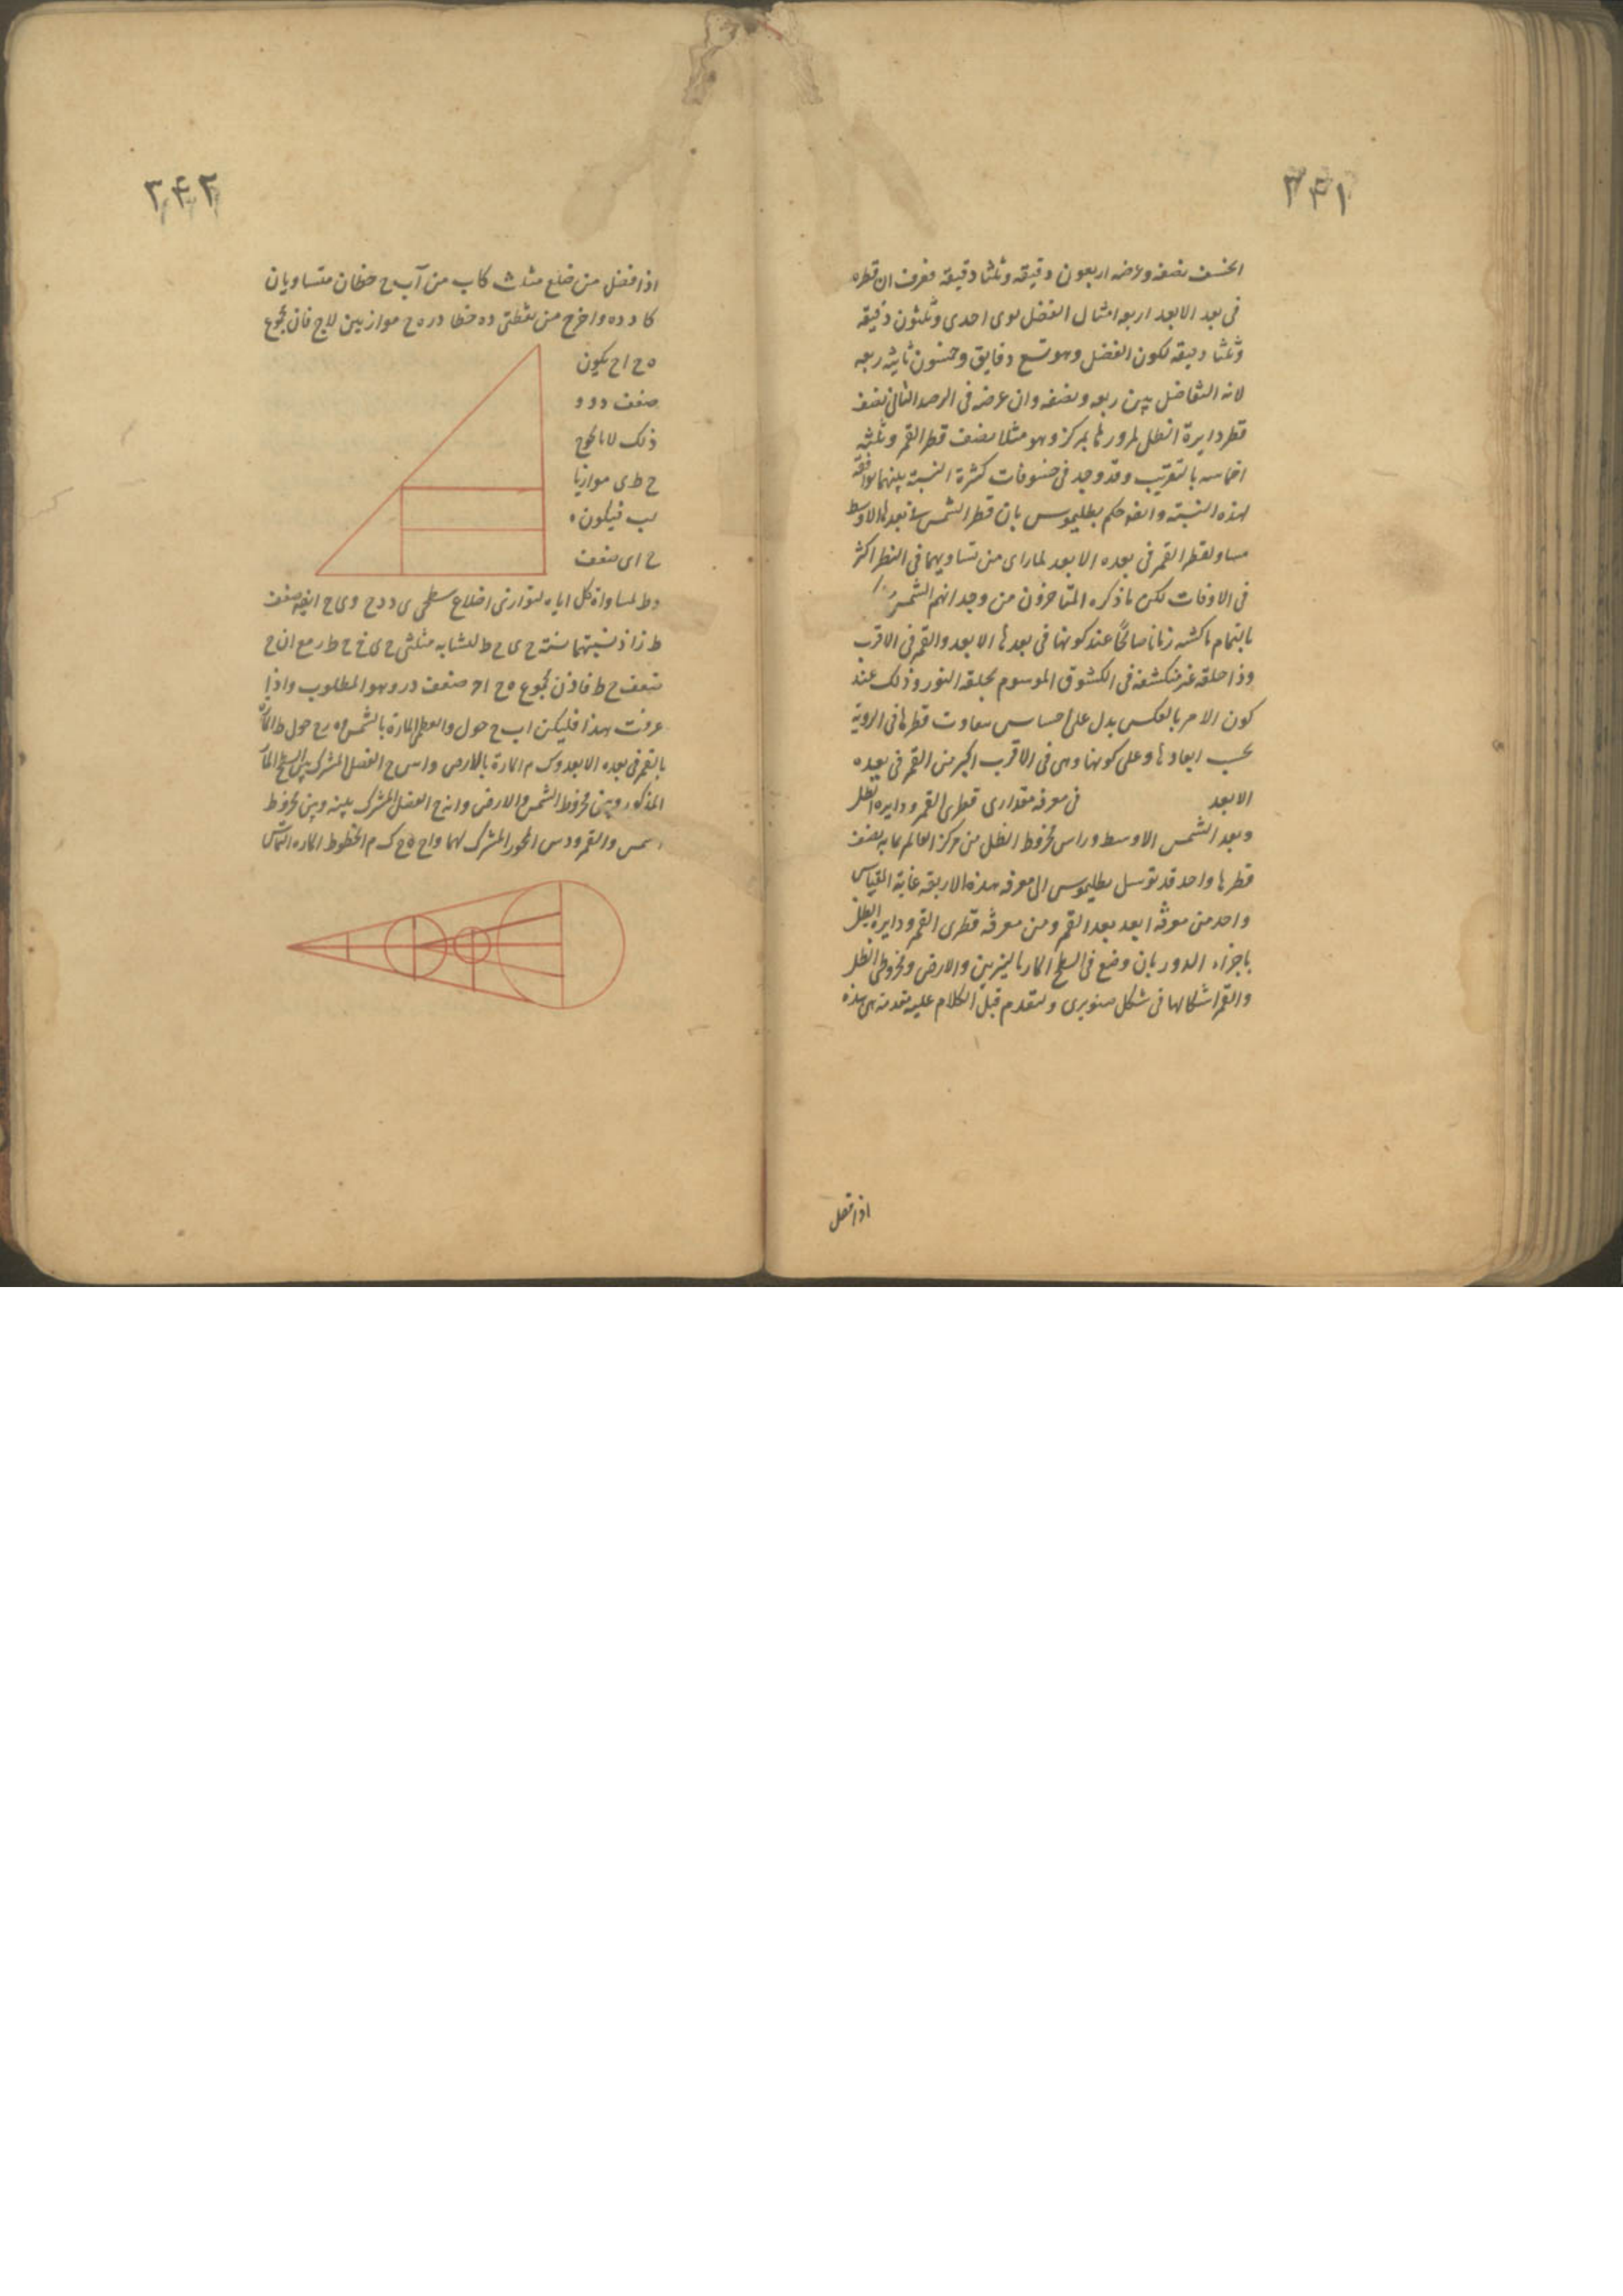 ٣٤١
انخسف نصفه وعرضه اربعون دقيقه وثلثا دقيقة فعرف ان قطره
فى بعد الابعد اربعه امثال الفضل نوى احدى وثلثون دقيقه
وثلثا دقيقه لكون الفضل وهو تسع دقايق وخمسون ثانية ربعه
لانه التفاضل بين ربعه ونصفه وان عرضه فى الرصد الثانى نصف
قطر دايرة الظل لمرورها بمركزه وهو مثلا نصف قطر القمر وثلثة
اخماسه بالتقريب وقد وجد فى خسوفات كثيرة النسبة بينهما موافقة
لهذه النسبة وايضا حكم بطليموس بان قطر الشمس فى بعدها الاوسط
مساو لقطر القمر فى بعده الابعد لما راى من تساويهما فى النظر اكثر
فى الاوقات لكن ما ذكره المتاخرون من وجدانهم الشمس
بالتمام ماكثه زمانا صالحا عند كونها فى بعدها الابعد والقمر فى الاقرب
وذا حلقه غير منكسفه فى الكسوف الموسوم بحلقه النور وذلك عند
كون الامر بالعكس يدل على احساس تفاوت قطرها فى الروية
بحسب ابعادها وعلى كونها وهى فى الاقرب اكبر من القمر فى بعده
الابعد فى معرفه مقدارى قطرى القمر ودايره الظل
وبعد الشمس الاوسط وراس مخروط الظل من مركز العالم بما به نصف
قطرها واحد قد توسل بطليموس الى معرفه هذه الاربعه غاية المقياس
واحد من معرفة ابعد بعد القمر ومن معرفة قطرى القمر ودايره الظل
باجزاء الدور بان وضع فى السطح المار بالنيرين والارض ومخروطى الظل
والقمر اشكالها فى شكل صنوبرى ولنقدم قبل الكلام عليه مقدمة هى هذه
اذا فصل
٣٤٢
اذا فصل من ضلع مثلث كاب من آ ب ح خطان متساويان
كا د ده واخرج من نقطتى ده خطا در ه ح موازيين لاج فان مجموع
ه ح اح يكون
ضعف د ر و
ذلك لانا نخرج
ح ط ى موازيا
لب فيكون ه
ح اى ضعف
د ط لمساواة كل اياه لتوازى اضلاع سطحى ى د د ح وى ح ايضا ضعف
ط ز اذ نسبتهما نسبة ح ى ح ط لتشابه مثلثى ح ى ح ح ط ر مع ان ح
ضعف ح ط فاذن مجموع ه ح اح ضعف در وهو المطلوب واذا
عرفت هذا فليكن اب ح حول د العظمى المارة بالشمس وه ر ح حول ط المارة
بالقمر فى بعده الابعد وك م المارة بالارض واس ح الفصل المشترك بين السطح المار
المذكور وبين مخروط الشمس والارض وانه ح الفصل المشترك بينه وبين مخروط
الشمس والقمر ود س المحور المشترك لهما واح ه ح ك م الخطوط المارة التماس